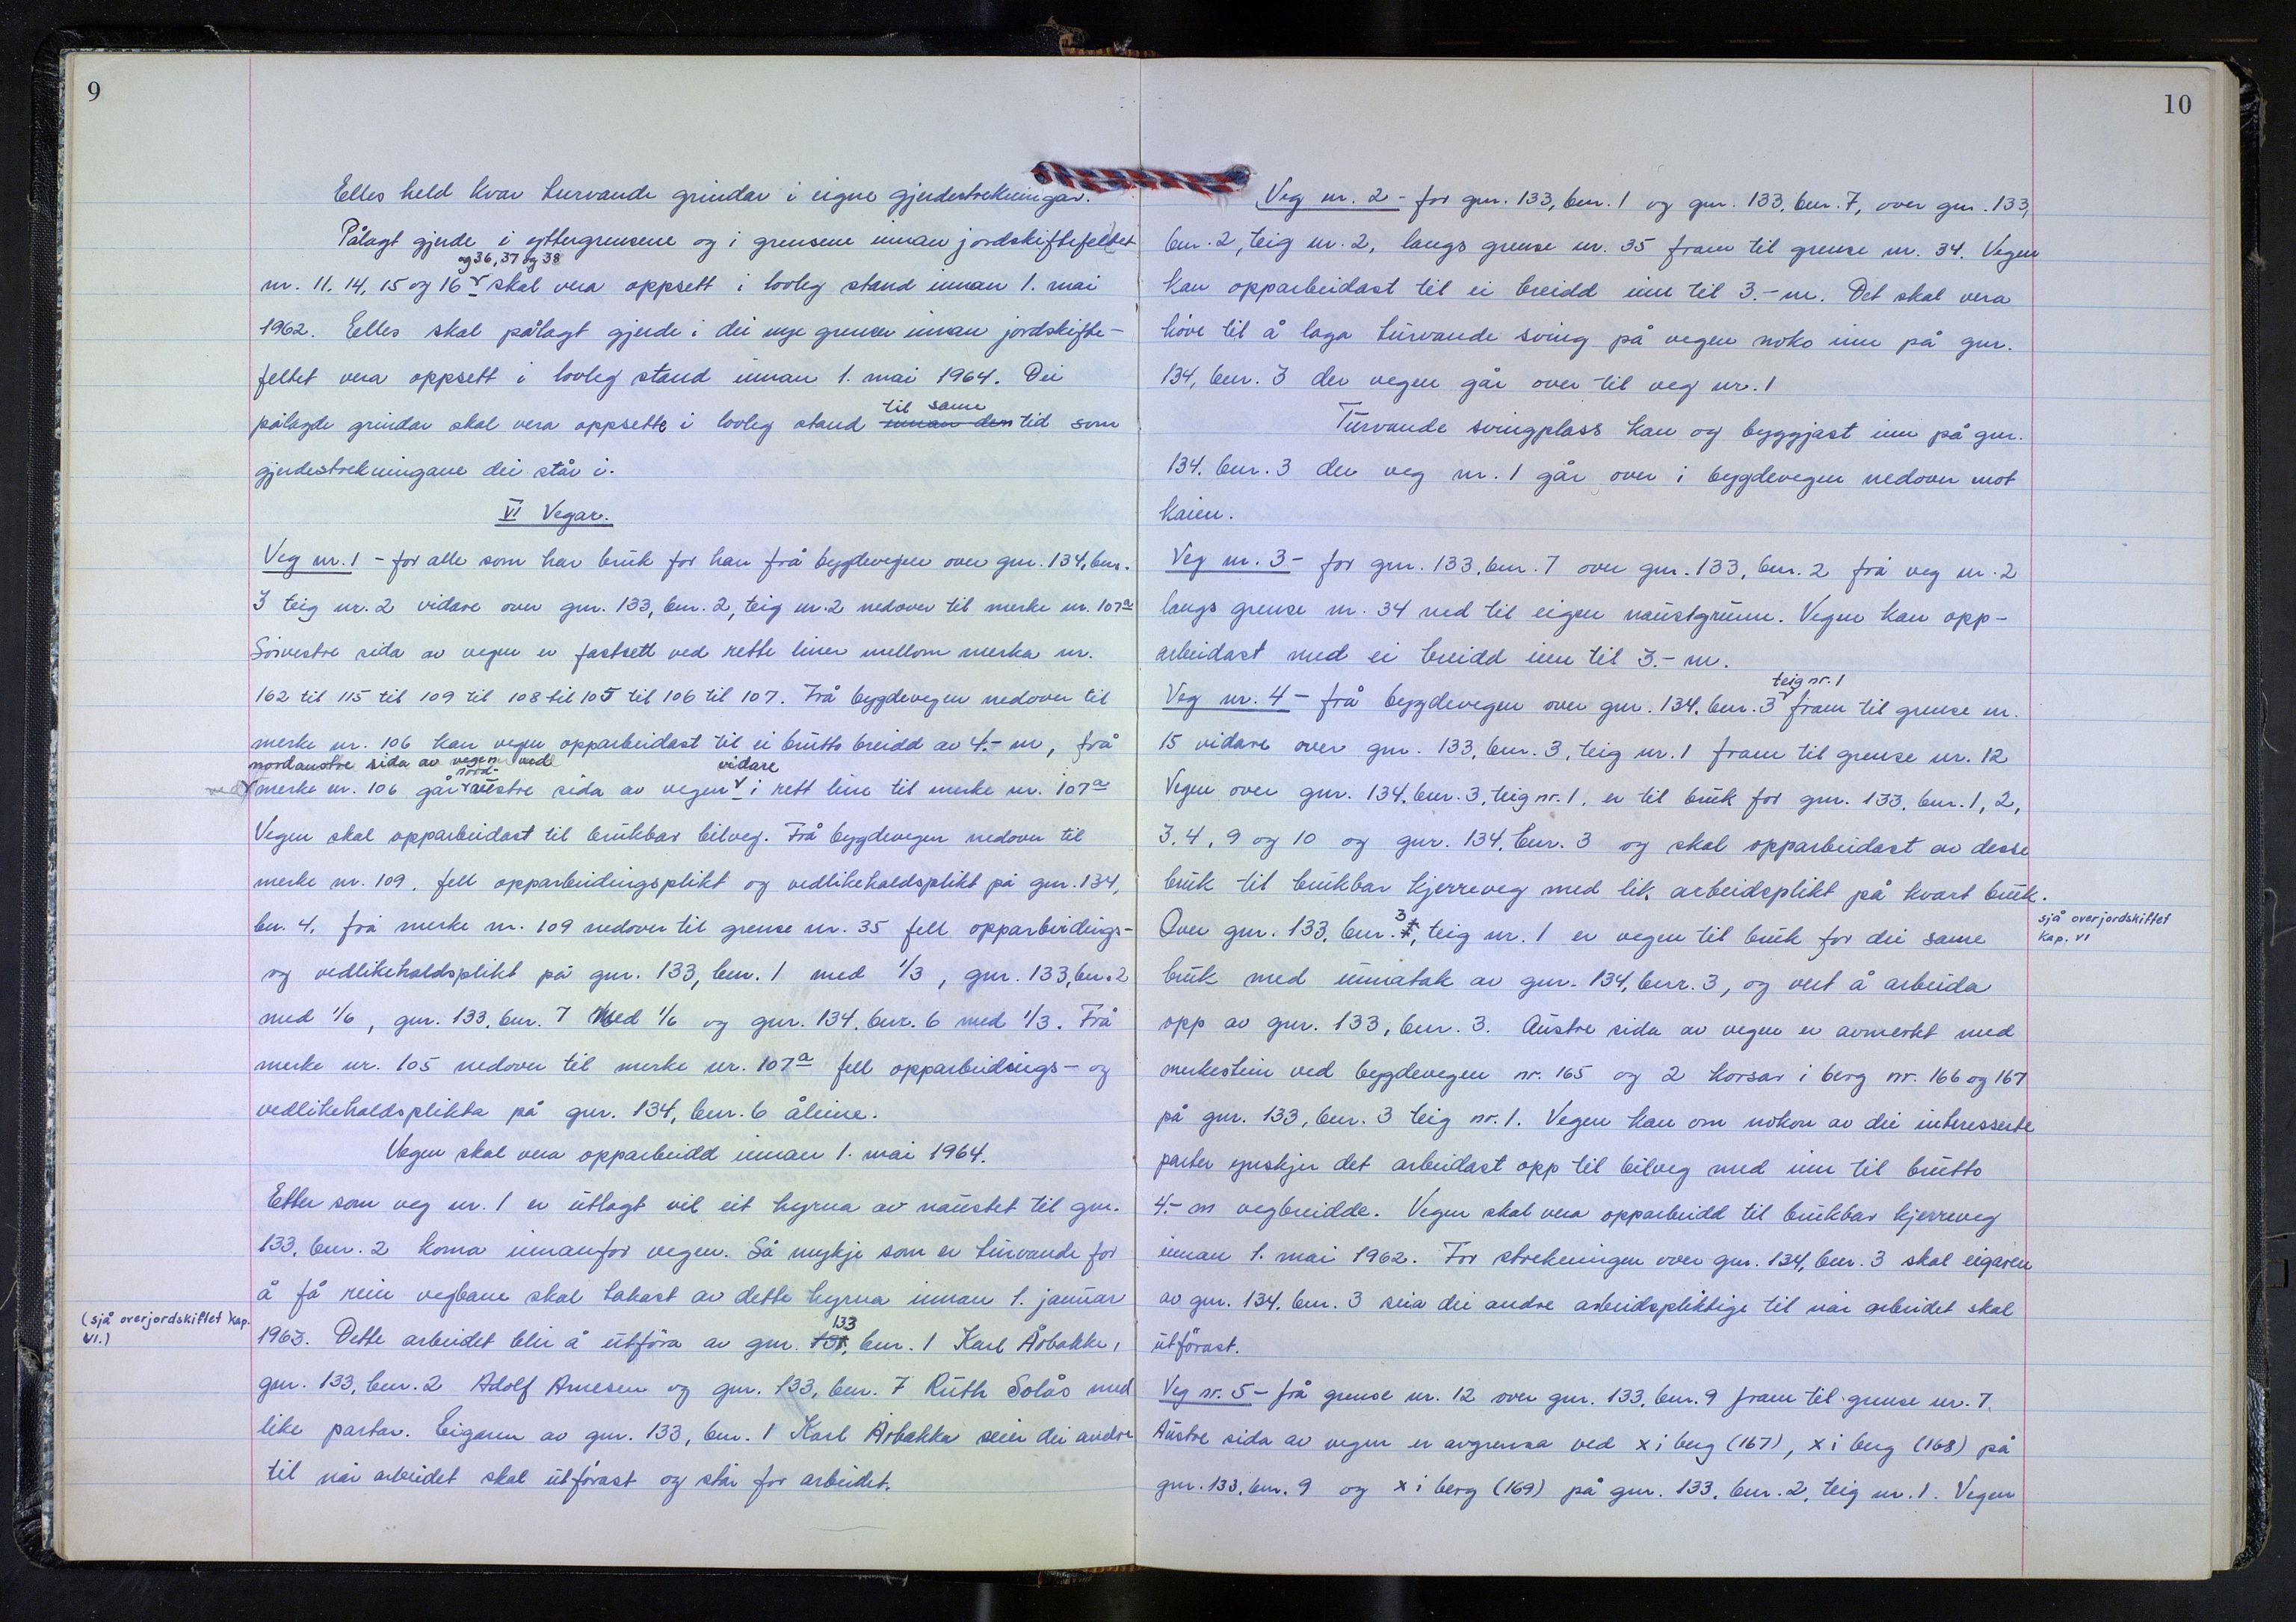 9
Elles held kvar turvande grindar i eigne gjerdestrekningar.
Pålagt gjerde i yttergrensene og i grensene innan jordskiftefeltet
og 36, 37 og 38
nr. 11, 14, 15 og 16 skal vera oppsett i lovleg stand innan 1. mai
1962. Elles skal pålagt gjerde i dei nye grenser innan jordskifte-
feltet vera oppsett i lovleg stand innan 1. mai 1964. Dei
til same
pålagde grindar skal vera oppsette i lovleg stand innan den tid som
gjerdestrekningane dei står i.
VI Vegar.
Veg nr. 1 - for alle som har bruk for han frå bygdevegen over gnr. 134, bnr.
3 teig nr. 2 vidare over gnr. 133, bnr. 2, teig nr. 2 nedover til merke nr. 107a
Sørvestre sida av vegen er fastsett ved rette liner mellom merka nr.
162 til 115 til 109 til 108 til 105 til 106 til 107. Frå bygdevegen nedover til
merke nr. 106 kan vegen opparbeidast til ei brutto breidd av 4.- m, frå
nordaustre sida av vegen ved
nord- vidare
ved merke nr. 106 går austre sida av vegen i rett line til merke nr. 107a
Vegen skal opparbeidast til brukbar bilveg. Frå bygdevegen nedover til
merke nr. 109. fell opparbeidingsplikt og vedlikehaldsplikt på gnr. 134,
bnr. 4. frå merke nr. 109 nedover til grense nr. 35 fell opparbeidings-
og vedlikehaldsplikt på gnr. 133, bnr. 1 med 1/3, gnr. 133, bnr. 2
med 1/6, gnr. 133, bnr. 7 med 1/6 og gnr. 134, bnr. 6 med 1/3. Frå
merke nr. 105 nedover til merke nr. 107a fell opparbeidings- og
vedlikehaldsplikta på gnr. 134, bnr. 6 åleine.
Vegen skal vera opparbeidd innan 1. mai 1964.
Etter som veg nr. 1 er utlagt vil eit hyrna av naustet til gnr.
133, bnr. 2 koma innanfor vegen. Så mykje som er turvande for
å få rein vegbane skal takast av dette hyrna innan 1. januar
(sjå overjordskiftet kap.
VI.)
133
1963. Dette arbeidet blir å utføra av gnr. bnr. 1 Karl Årbakke,
gnr. 133, bnr. 2 Adolf Arnesen og gnr. 133, bnr. 7 Ruth Solås med
like partar. Eigaren av gnr. 133, bnr. 1 Karl Årbakka seier dei andre
til når arbeidet skal utførast og står for arbeidet.
10
Veg nr. 2 - for gnr. 133, bnr. 1 og gnr. 133, bnr. 7, over gnr. 133,
bnr. 2, teig nr. 2, langs grense nr. 35 fram til grense nr. 34. Vegen
kan opparbeidast til ei breidd inn til 3.- m. Det skal vera
høve til å laga turvande sving på vegen noko inn på gnr.
134, bnr. 3 der vegen går over til veg nr. 1
Turvande svingplass kan og byggjast inn på gnr.
134, bnr. 3 der veg nr. 1 går over i bygdevegen nedover mot
kaien.
Veg nr. 3 - for gnr. 133, bnr. 7 over gnr. 133, bnr. 2 frå veg nr. 2
langs grense nr. 34 ned til eigen naustgrunn. Vegen kan opp-
arbeidast med ei breidd inn til 3.- m.
teig nr. 1
Veg nr. 4 - frå bygdevegen over gnr. 134, bnr. 3 fram til grense nr.
15 vidare over gnr. 133, bnr. 3, teig nr. 1 fram til grense nr. 12
Vegen over gnr. 134, bnr. 3, teig nr. 1. er til bruk for gnr. 133, bnr. 1, 2,
3, 4, 9 og 10 og gnr. 134, bnr. 3 og skal opparbeidast av desse
bruk til brukbar kjerreveg med lik arbeidsplikt på kvart bruk.
sjå overjordskiftet
Kap. VI
3
Over gnr. 133, bnr. teig nr. 1 er vegen til bruk for dei same
bruk med unnatak av gnr. 134, bnr. 3, og vert å arbeida
opp av gnr. 133, bnr. 3. Austre sida av vegen er avmerkt med
merkestein ved bygdevegen nr. 165 og 2 korsar i berg nr. 166 og 167
på gnr. 133, bnr. 3 teig nr. 1. Vegen kan om nokon av dei interesserte
parter ynskjer det arbeidast opp til bilveg med inn til brutto
4.- m vegbreidde. Vegen skal vera opparbeidd til brukbar kjerreveg
innan 1. mai 1962. For strekningen over gnr. 134, bnr. 3 skal eigaren
av gnr. 134, bnr. 3 seia dei andre arbeidspliktige til når arbeidet skal
utførast.
Veg nr. 5 - frå grense nr. 12 over gnr. 133, bnr. 9 fram til grense nr. 7.
Austre sida av vegen er avgrensa ved x i berg (167), x i berg (168) på
gnr. 133, bnr. 9 og x i berg (169) på gnr. 133, bnr. 2, teig nr. 1. Vegen